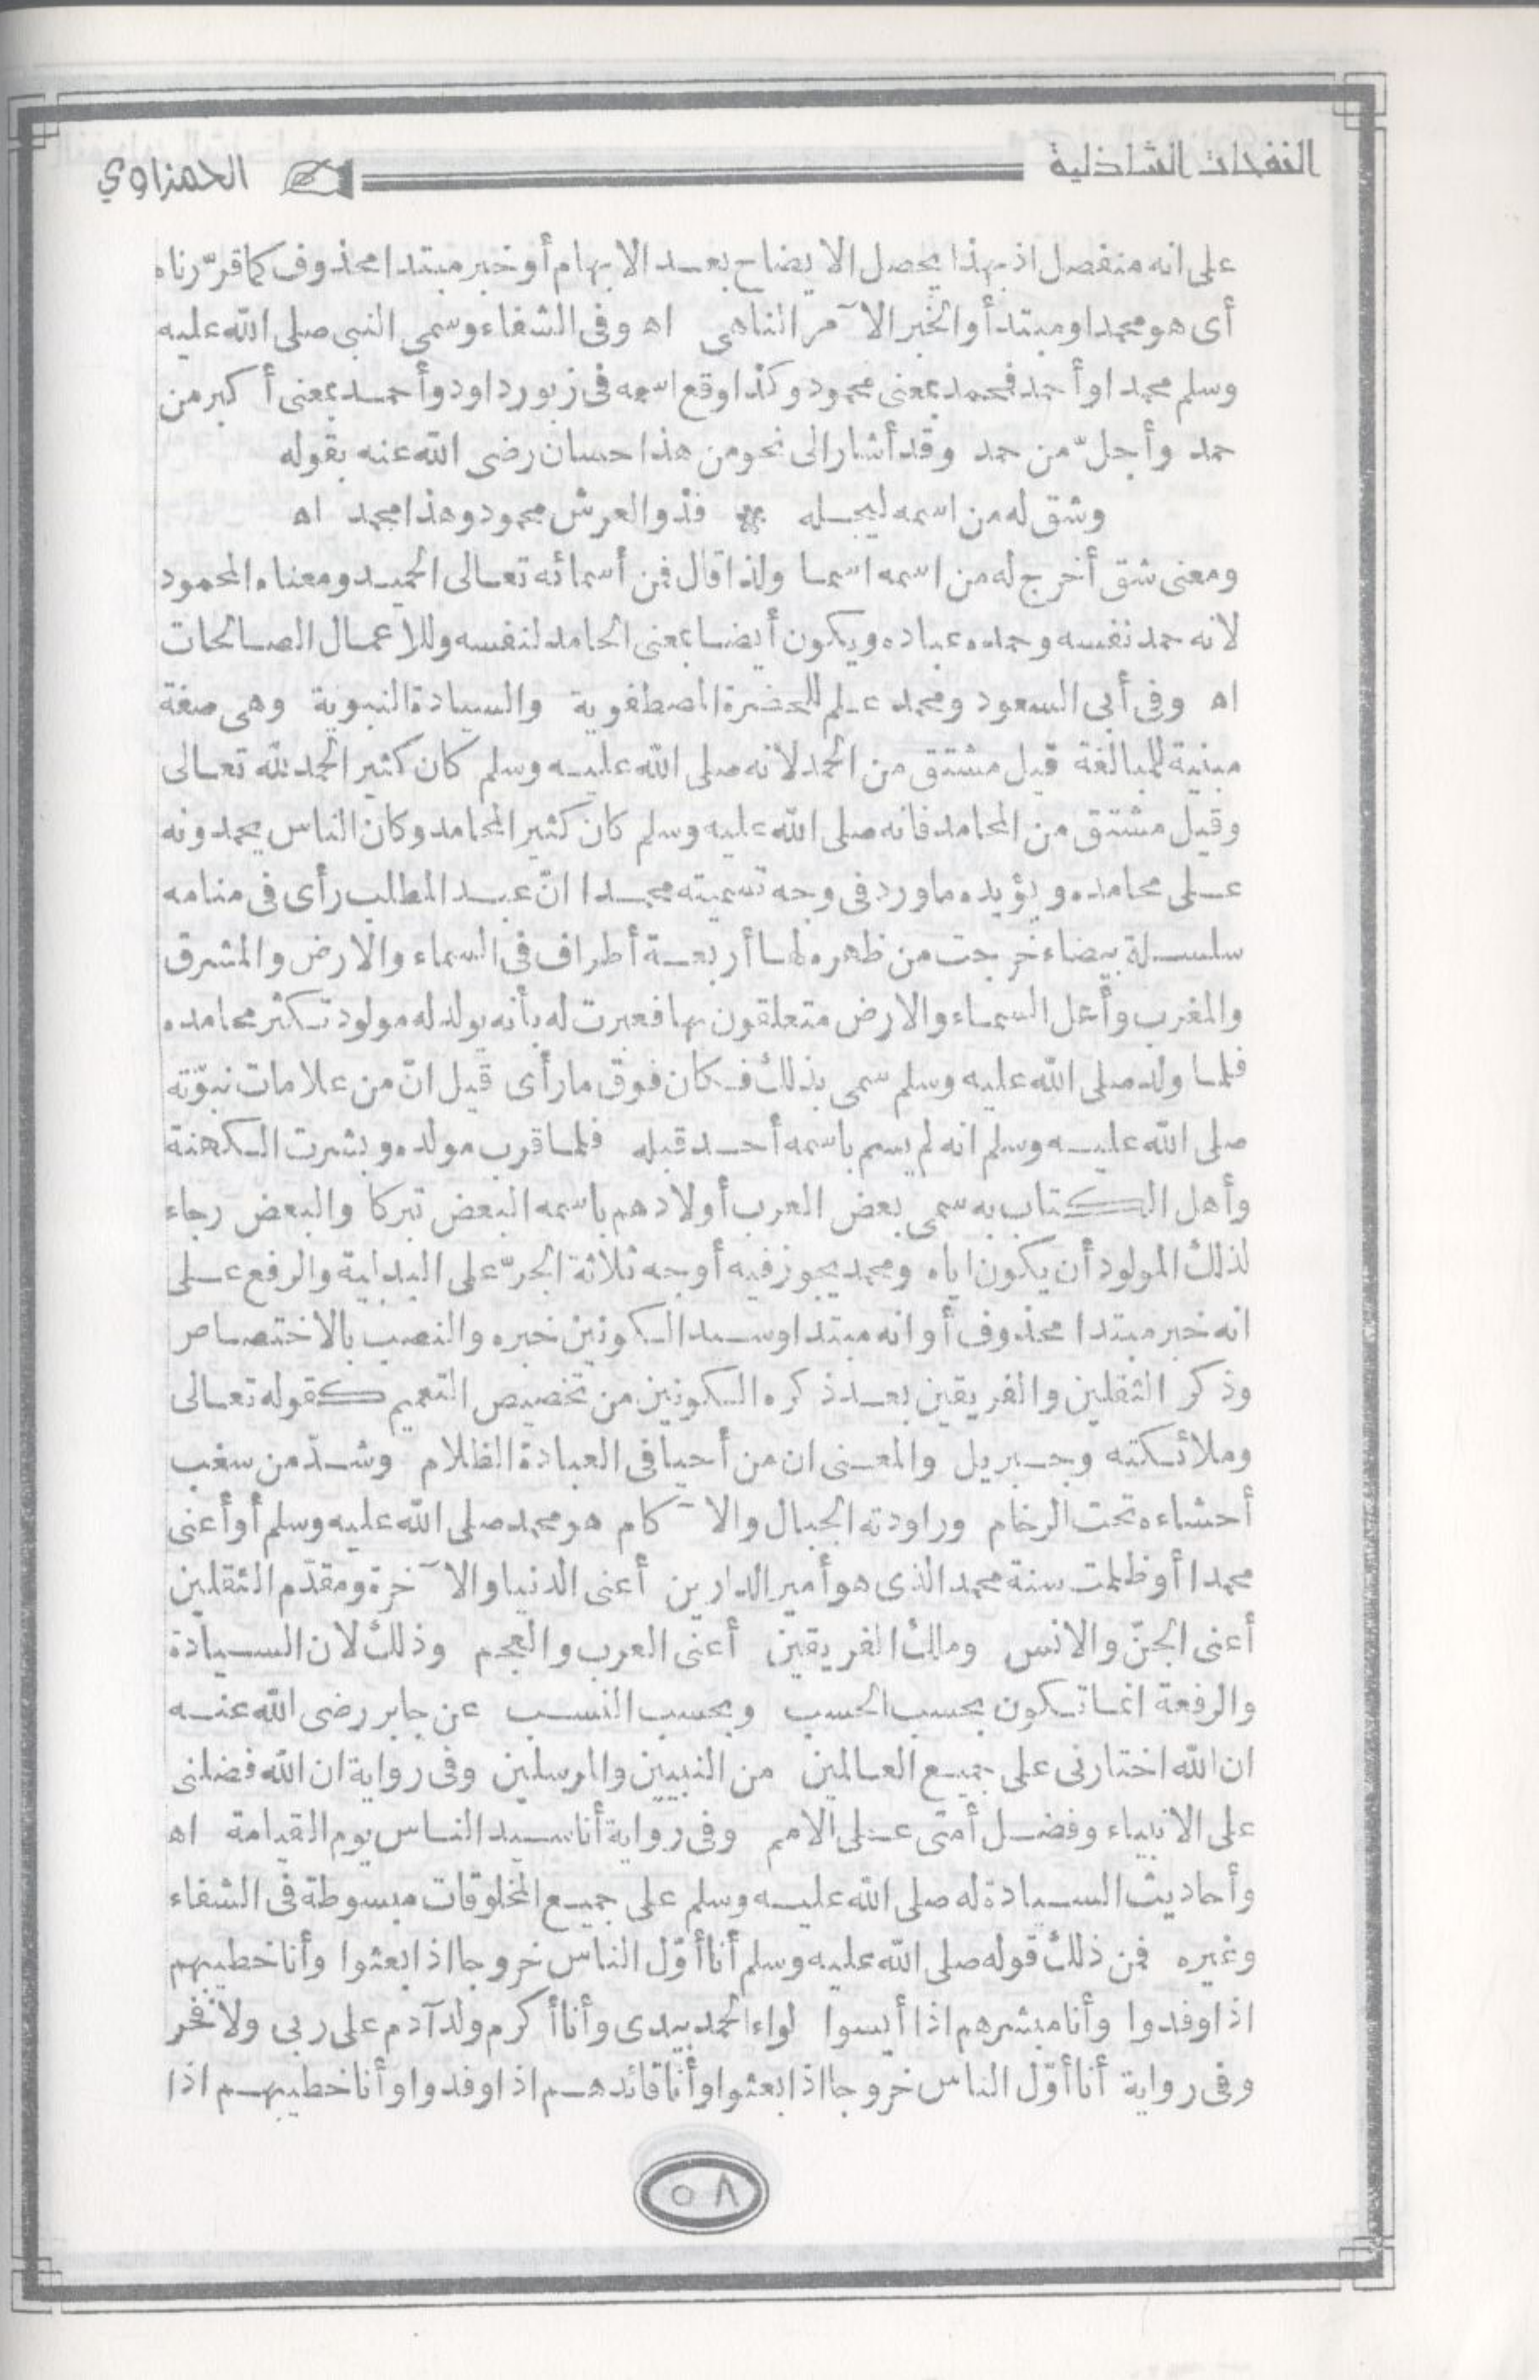 النفحات الشاذلية
الحمزاوي
على انه منفصل اذ بهذا يحصل الايضاح بعد الابهام أو خبر مبتدا محذوف كما قرّرناه
أى هو محمد او مبتدأ والخبر الآمر الناهى اه وفى الشفاء وسمى النبى صلى الله عليه
وسلم محمدا وأحمد فمحمد بمعنى محمود وكذا وقع اسمه فى زبور داود وأحمد بمعنى أكبر من
حمد وأجلّ من حمد وقد أشار الى نحو من هذا حسان رضى الله عنه بقوله
وشق له من اسمه ليجله * فذو العرش محمود وهذا محمد اه
ومعنى شق أخرج له من اسمه اسما ولذا قال فمن أسمائه تعالى الحميد ومعناه المحمود
لانه حمد نفسه وحمده عباده ويكون أيضا بمعنى الحامد لنفسه وللاعمال الصالحات
اه وفى أبى السعود ومحمد علم للحضرة المصطفوية والسيادة النبوية وهى صفة
مبنية للمبالغة قيل مشتق من الحمد لانه صلى الله عليه وسلم كان كثير الحمد لله تعالى
وقيل مشتق من المحامد فانه صلى الله عليه وسلم كان كثير المحامد وكان الناس يحمدونه
على محامده ويؤيده ما ورد فى وجه تسميته محمدا انّ عبد المطلب رأى فى منامه
سلسلة بيضاء خرجت من ظهره لها أربعة أطراف فى السماء والارض والمشرق
والمغرب وأهل السماء والارض متعلقون بها فعبرت له بأنه يولد له مولود تكثر محامده
فلما ولد صلى الله عليه وسلم سمى بذلك فكان فوق ما رأى قيل انّ من علامات نبوّته
صلى الله عليه وسلم انه لم يسم باسمه أحد قبله فلما قرب مولده وبشرت الكهنة
وأهل الكتاب به سمى بعض العرب أولادهم باسمه البعض تبركا والبعض رجاء
لذلك المولود أن يكون اياه ومحمد يجوز فيه أوجه ثلاثة الجرّ على البدلية والرفع على
انه خبر مبتدا محذوف أو انه مبتدا وسيد الكونين خبره والنصب بالاختصاص
وذكر الثقلين والفريقين بعد ذكره الكونين من تخصيص التعميم كقوله تعالى
وملائكته وجبريل والمعنى ان من أحيا فى العبادة الظلام وشدّ من سغب
أحشاءه تحت الرخام وراودته الجبال والآكام هو محمد صلى الله عليه وسلم أو أعنى
محمدا أو ظلمت سنة محمد الذى هو أمير الدارين أعنى الدنيا والآخرة ومقدّم الثقلين
أعنى الجنّ والانس ومالك الفريقين أعنى العرب والعجم وذلك لان السيادة
والرفعة انما تكون بحسب الحسب وبحسب النسب عن جابر رضى الله عنه
ان الله اختارنى على جميع العالمين من النبيين والمرسلين وفى رواية ان الله فضلنى
على الانبياء وفضل أمتى على الامم وفى رواية أنا سيد الناس يوم القيامة اه
وأحاديث السيادة له صلى الله عليه وسلم على جميع المخلوقات مبسوطة فى الشفاء
وغيره فمن ذلك قوله صلى الله عليه وسلم أنا أوّل الناس خروجا اذا بعثوا وأنا خطيبهم
اذا وفدوا وأنا مبشرهم اذا أيسوا لواء الحمد بيدى وأنا أكرم ولد آدم على ربى ولا فخر
وفى رواية أنا أوّل الناس خروجا اذا بعثوا وأنا قائدهم اذا وفدوا وأنا خطيبهم اذا
٥٨